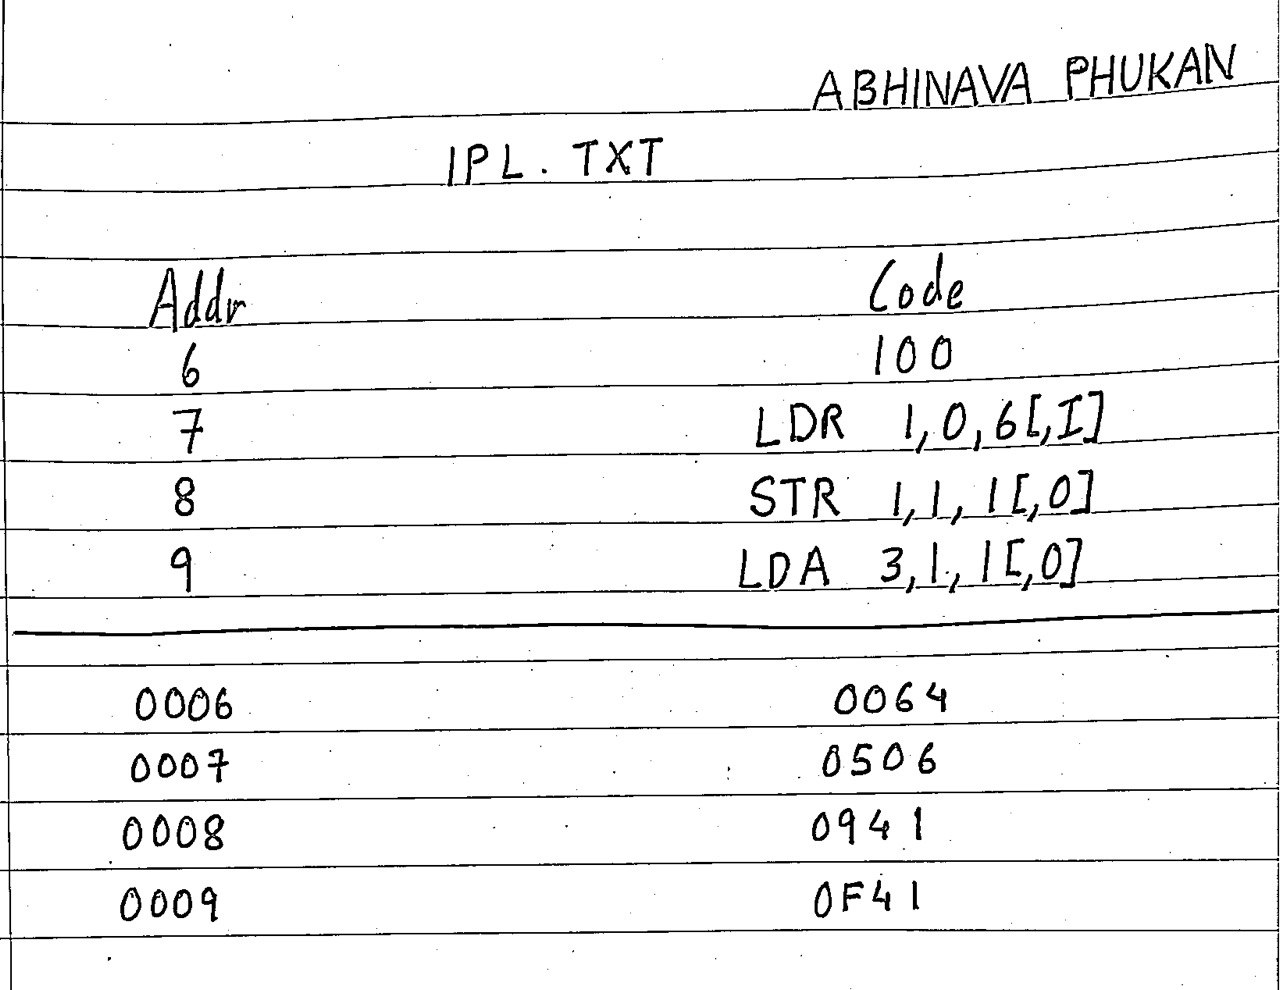 ABHINAVA PHUKAN
IPL.TXT
Addr Code
6 100
7 LDR 1,0,6[,I]
8 STR 1,1,1[,0]
9 LDA 3,1,1[,0]
0006 0064
0007 0506
0008 0941
0009 0F41